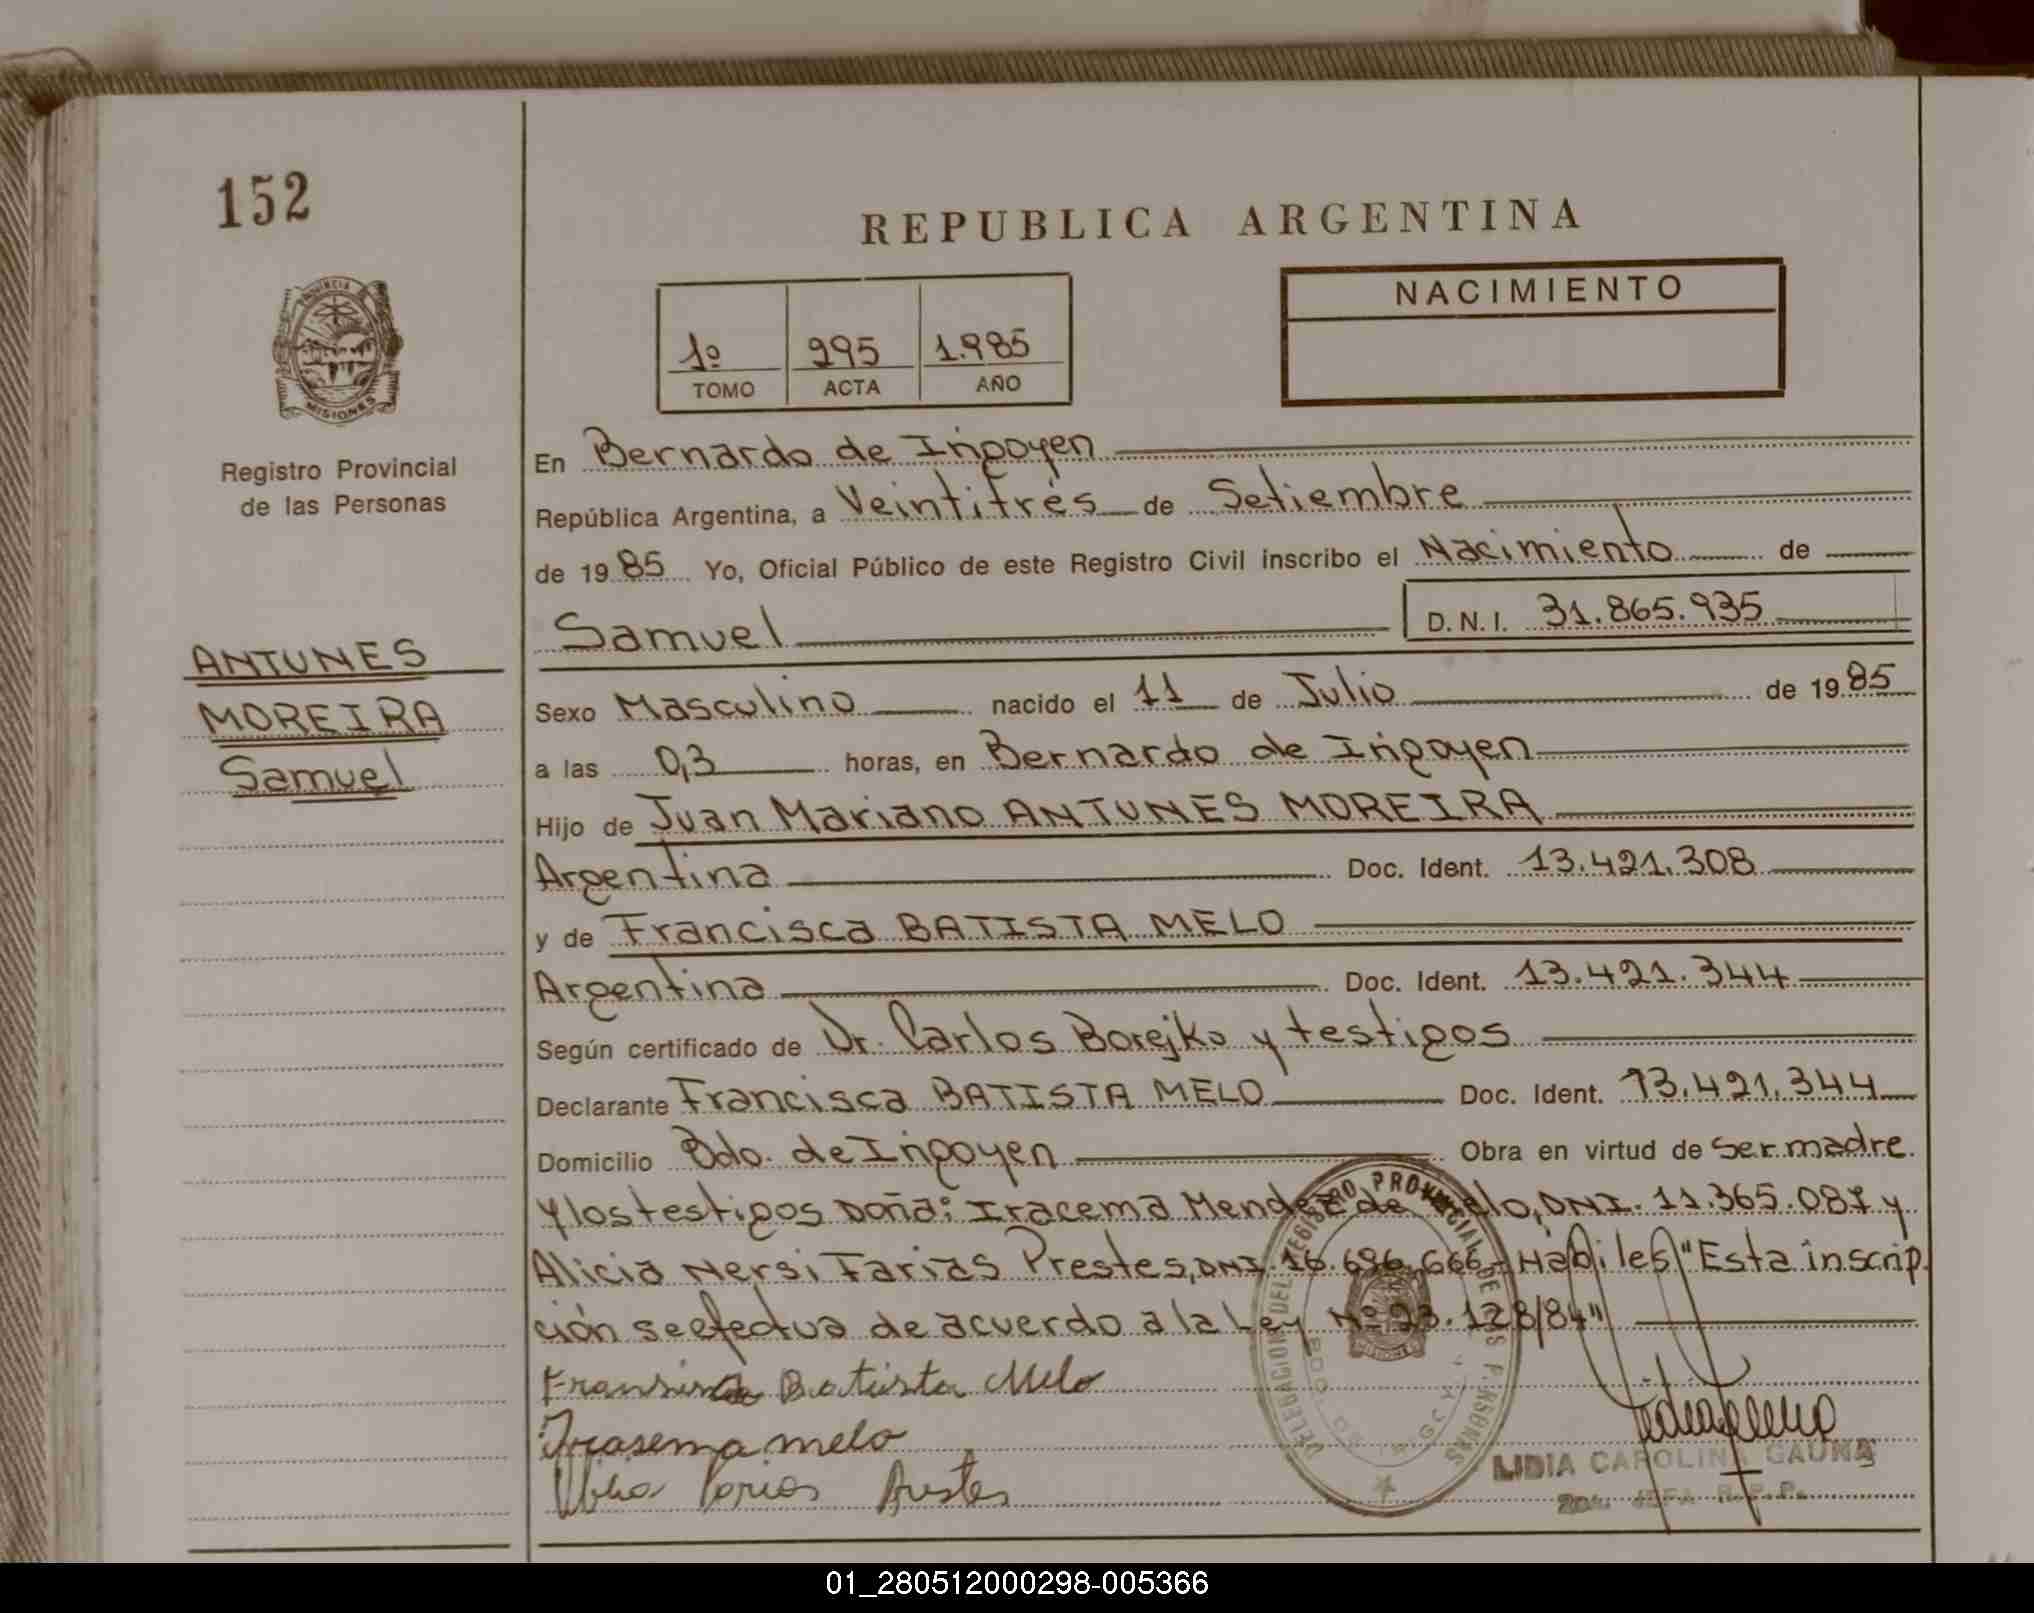 152
REPUBLICA ARGENTINA
PROVINCIA
MISIONES
Registro Provincial
de las Personas
1º 295 1.985
TOMO ACTA AÑO
NACIMIENTO
En Bernardo de Irigoyen
República Argentina, a Veintitrés de Setiembre
de 1985 Yo, Oficial Público de este Registro Civil inscribo el Nacimiento de
Samuel D.N.I. 31.865.935
ANTUNES
MOREIRA
Samuel
Sexo Masculino nacido el 11 de Julio de 1985
a las 0,3 horas, en Bernardo de Irigoyen
Hijo de Juan Mariano ANTUNES MOREIRA
Argentina Doc. Ident. 13.421.308
y de Francisca BATISTA MELO
Argentina Doc. Ident. 13.421.344
Según certificado de Dr. Carlos Borejko y testigos
Declarante Francisca BATISTA MELO Doc. Ident. 13.421.344
Domicilio Bdo. de Irigoyen Obra en virtud de ser madre
y los testigos Doña: Iracema Mendez de Melo, DNI. 11.365.087 y
Alicia Nersi Farias Prestes, DNI. 16.696.666- Hábiles "Esta inscrip
ción se efectua de acuerdo a la Ley Nº 23.128/84"
Batista Melo
Irasema melo
Farias Prestes
DELEGACION DEL REGISTRO PROVINCIAL DE LAS PERSONAS
LIDIA CAROLINA GAUNA
JEFA R.P.P.
01_280512000298-005366